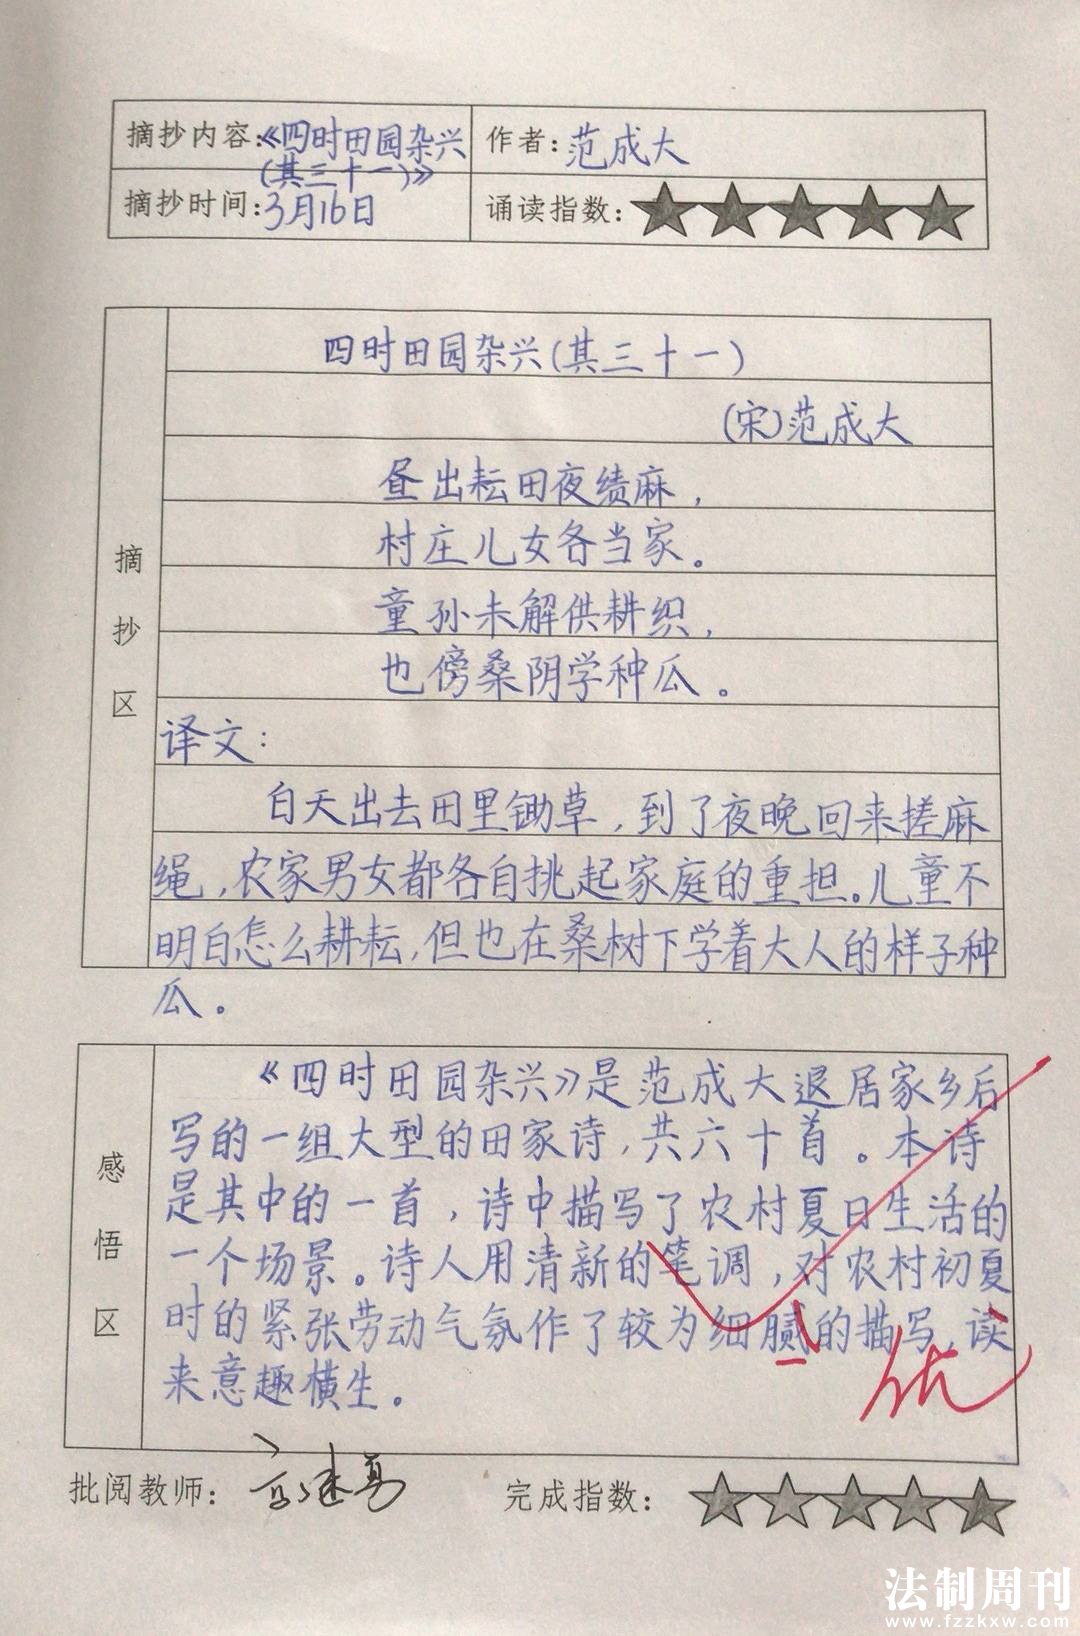 摘抄内容:《四时田园杂兴
(其三十一)》
作者:范成大
摘抄时间:3月16日
诵读指数:
摘抄区
四时田园杂兴(其三十一)
(宋)范成大
昼出耘田夜绩麻,
村庄儿女各当家。
童孙未解供耕织,
也傍桑阴学种瓜。
译文:
白天出去田里锄草,到了夜晚回来搓麻
绳,农家男女都各自挑起家庭的重担。儿童不
明白怎么耕耘,但也在桑树下学着大人的样子种
瓜。
感悟区
《四时田园杂兴》是范成大退居家乡后
写的一组大型的田家诗,共六十首。本诗
是其中的一首,诗中描写了农村夏日生活的
一个场景。诗人用清新的笔调,对农村初夏
时的紧张劳动气氛作了较为细腻的描写,读
来意趣横生。
优
批阅教师:
完成指数:
法制周刊
www.fzzkxw.com